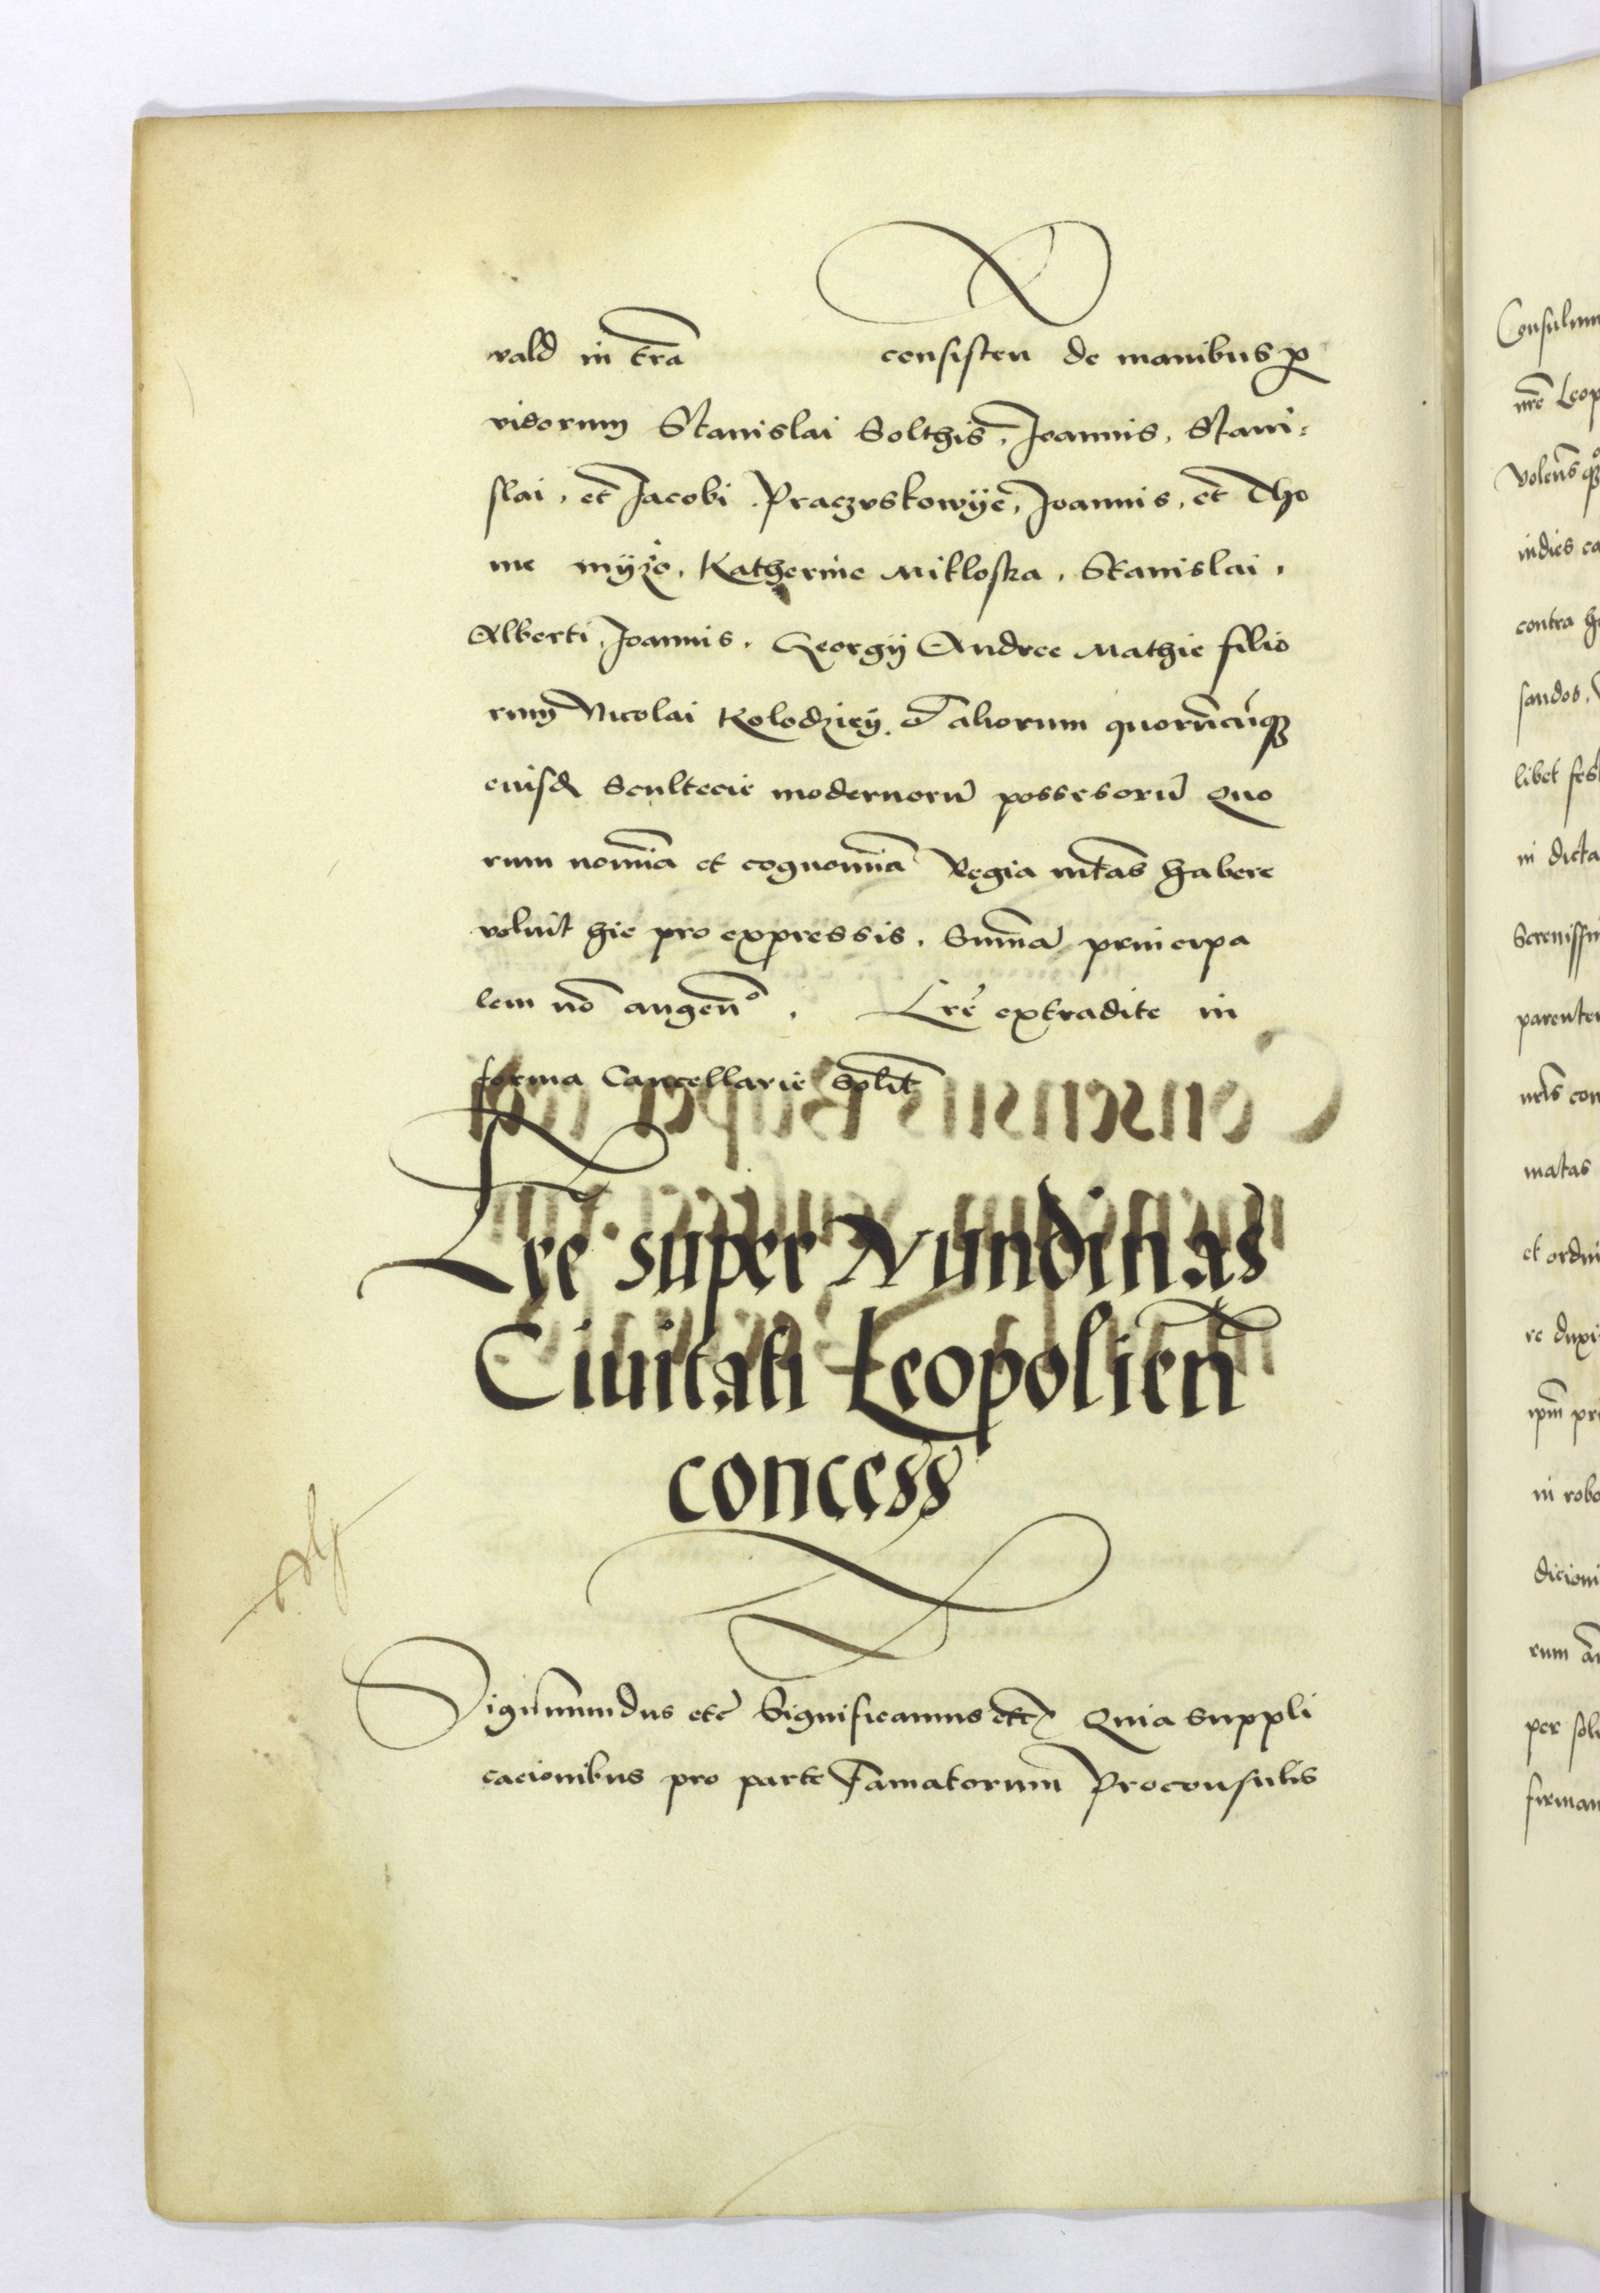 vald in tra͞ consisten de manibus p̱
vidorum Stanislai Solthis, Joannis, Stani-
slai, et Jacobi Praczvskowye, Joannis, et Tho
me myzo, Katherine Mikloska, Stanislai,
Alberti, Joannis, Georgÿ Andree Mathie filio
rum Nicolai Kolodzieÿ, et aliorum quorūcūqꝫ
eiusd Scultecie modernorū possesorū Quo
rum nomīa et cognomīa Regia mtas habere
voluit hic pro expressis, Sum̄a principa
lem nō augen͞o. Lr̄e extradite in
forma Cancellarie solit
Lr̄e super Nundinas
Ciuitati Leopolien̄
concess
Sigismundus etc Significamus etc Quia suppli
cacionibus pro parte Famatorum Proconsulis
Consulum
nr̄e Leop
indies ca
contra h
sandos,
libet fes
in dicta
Serenissi
parente
nr̄is con
matas
et ordi
re duxi
ip̄m pr
in robo
dicioni
rum
per sol
firman